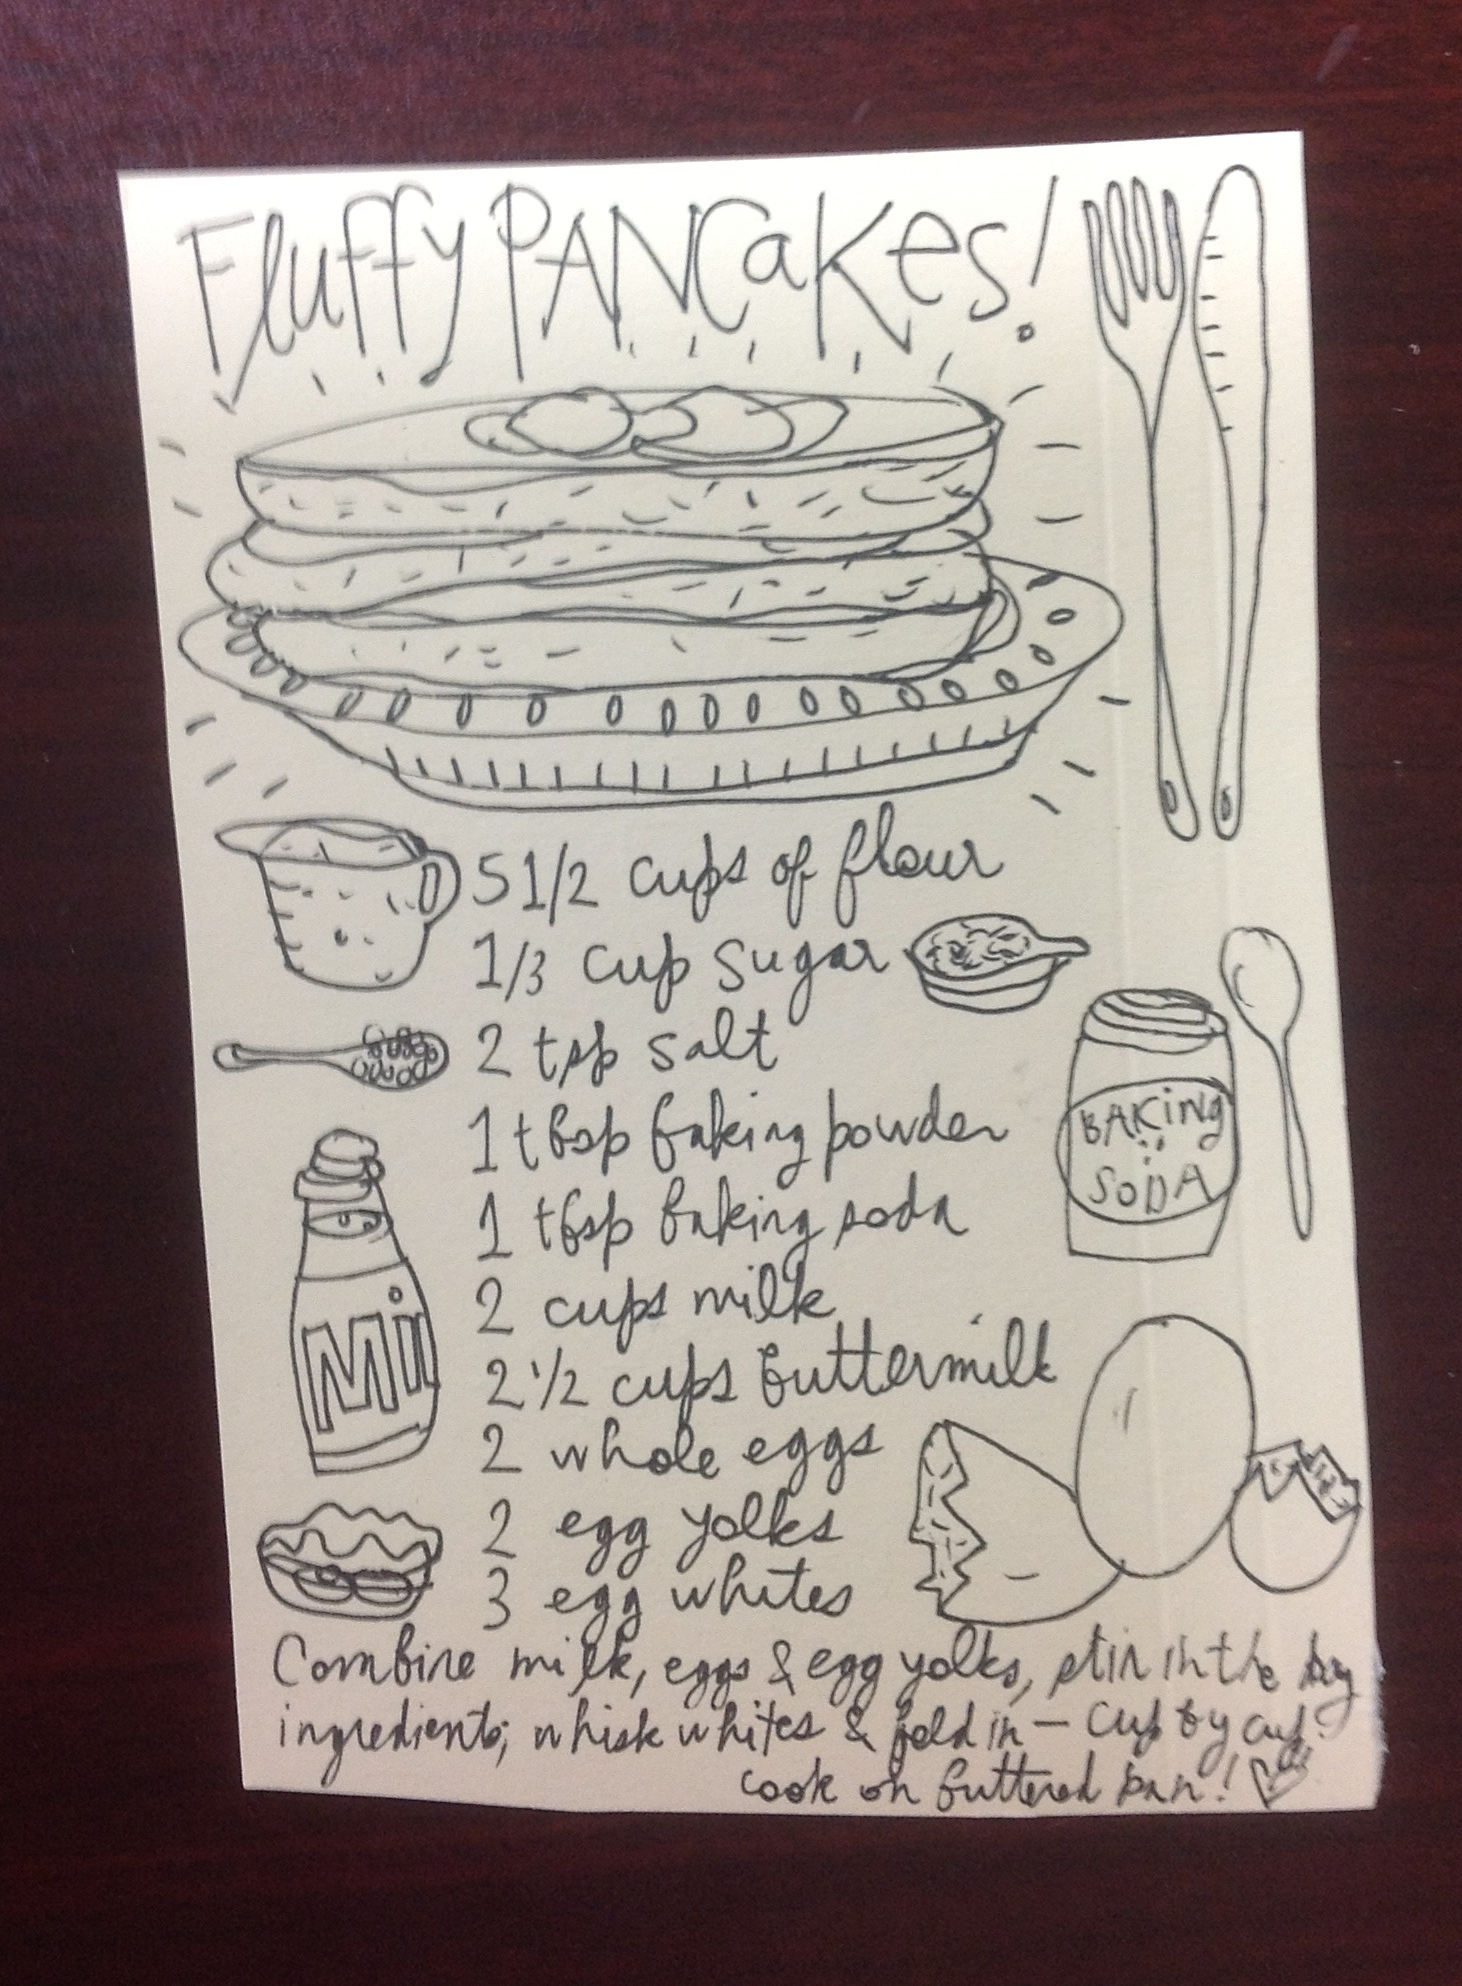 Fluffy PANCakes!
5 1/2 cups of flour
1/3 cup sugar
2 tsp salt
1 tbsp baking powder
1 tbsp baking soda
BAKing
SODA
2 cups milk
Mil
2 1/2 cups buttermilk
2 whole eggs
2 egg yolks
3 egg whites
Combine milk, eggs & egg yolks, stir in the dry
ingredients; whisk whites & fold in – cup by cup.
cook on buttered pan!